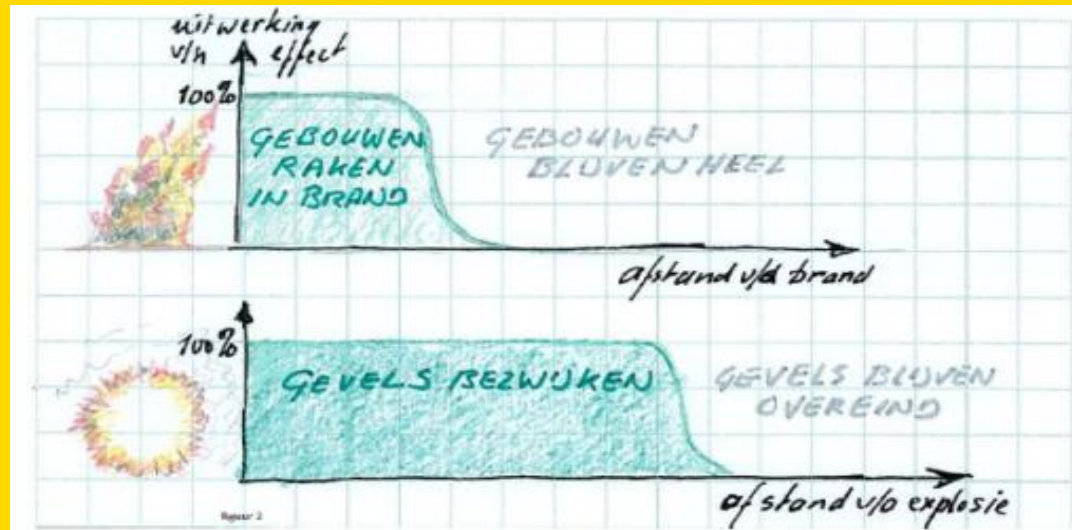 uitwerking
v/h effect
100%
GEBOUWEN
RAKEN
IN BRAND
GEBOUWEN
BLIJVEN HEEL
afstand v/d brand
100%
GEVELS BEZWIJKEN
GEVELS BLIJVEN
OVEREIND
afstand v/d explosie
Figuur 2